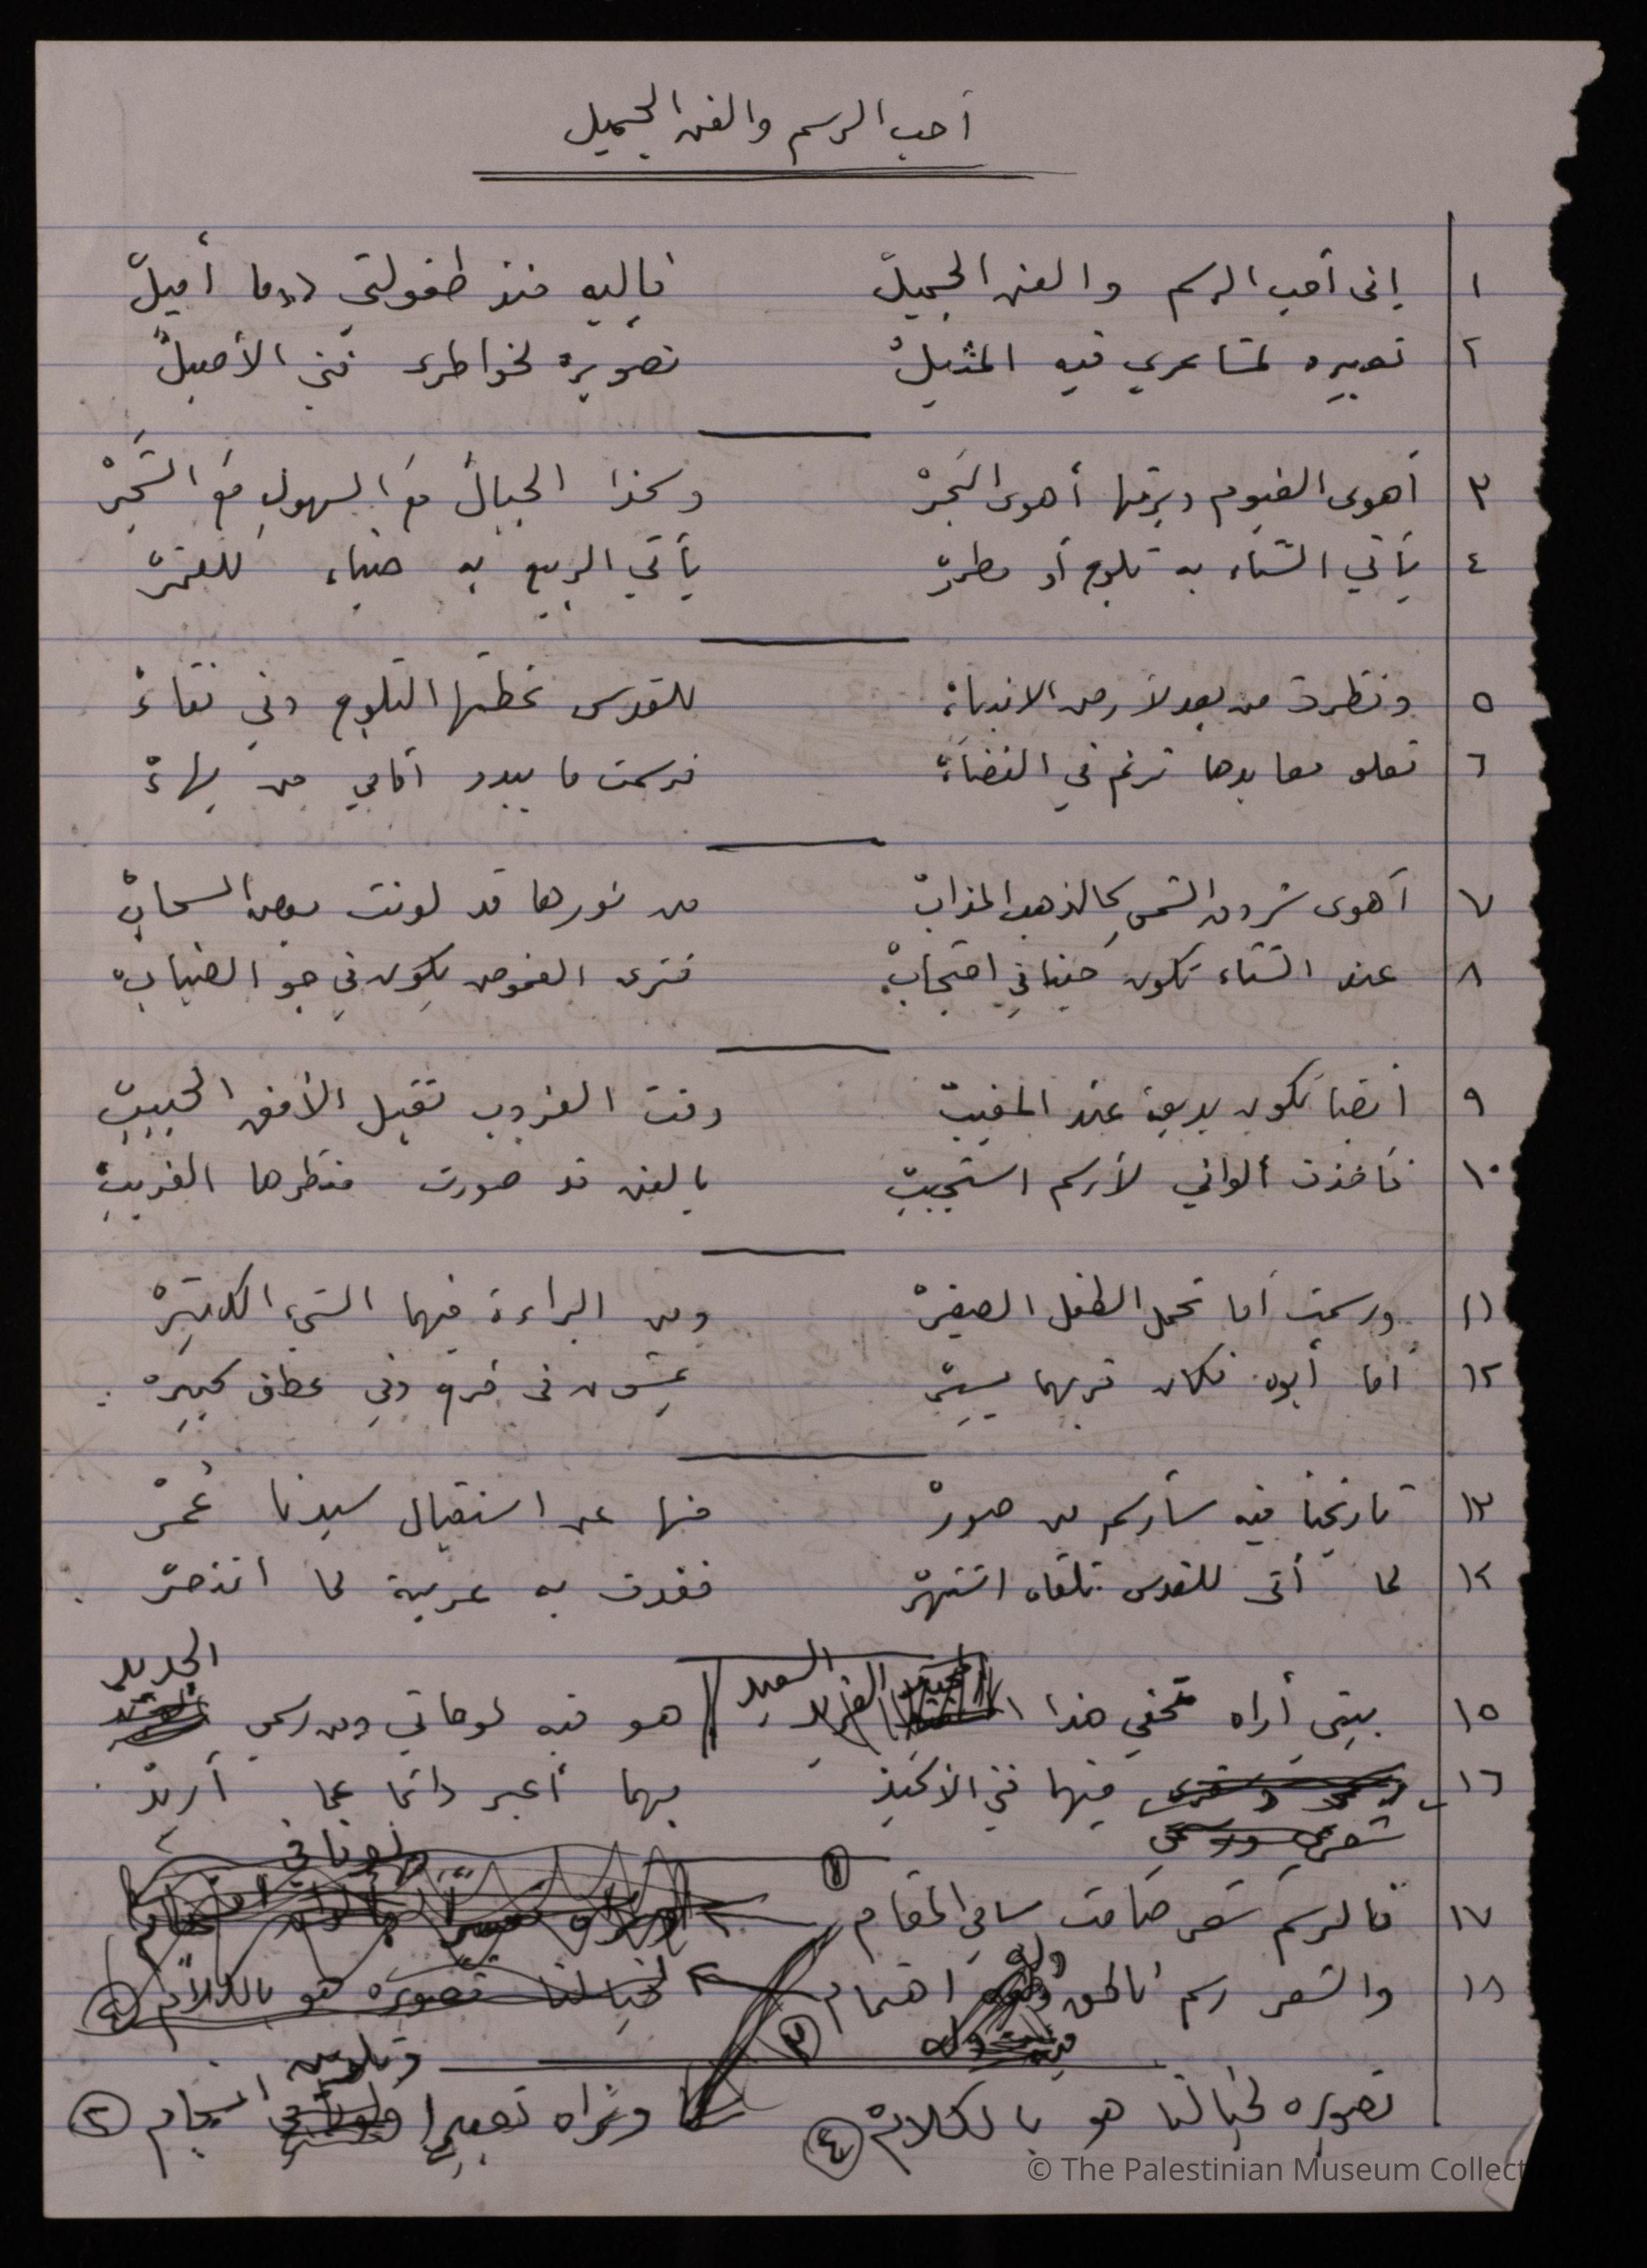 أحب الرسم والفن الجميل
١ إني أحب الرسم والفن الجميلْ فإليه منذ طفولتي دوما أميلْ
٢ تعبيره لمشاعري فيه المثيلْ تصويره لخواطري فني الأصيلْ
٣ أهوى الغيوم وبرقها أهوى البَحرْ وكذا الجبالُ مع السهولِ مع الشَجَرْ
٤ يأتي الشتاء به ثلوج أو مطرْ يأتي الربيع به ضياء للقمرْ
٥ ونظرت من بعد لأرض الانبياءْ للقدس غطتها الثلوج وفي نقاءْ
٦ تعلو معابدها ترنم في الفضاءْ فرسمت ما يبدو أمامي من بهاءْ
٧ أهوى شروق الشمسِ كالذهب المذابْ من نورها قد لونت بعض السحابْ
٨ عند الشتاء تكون حينا في احتجابْ فترى الغموض يكون في جو الضبابْ
٩ أيضا تكون بديعة عند المغيبْ وقت الغروب تقبل الأفق الحبيبْ
١٠ فأخذت ألواني لأرسم استجيبْ بالفن قد صورت منظرها الغريبْ
١١ ورسمت أما تحمل الطفل الصغيرْ ومن البراءة فيهما الشيء الكثيرْ
١٢ أما أبوه فكان قربهما يسيرْ يمشون في فرح وفي عطف كبيرْ
١٣ تاريخنا فيه سأرسم من صورْ منها عن استقبال سيدنا عُمَرْ
١٤ لما أتى للقدس تلقاه اشتهرْ فغدت به عربية لما انتصرْ
الجديد
١٥ بيتي أراه متحفي هذا الفريد السعيد هو فيه لوحاتي ومن رسمي
١٦ فيها فني الاكيد بهما أعبر دائما عما أريدْ
شعري ورسمي
١٧ فالرسم شعر صامت سامي المقام ١
١٨ والشعر رسم ناطق وله اهتمام ٣
لخيالنا تصويره هو بالكلام ٤
تصويره لخيالنا هو بالكلامْ ٤ ونراه تعبيرا انسجام ٢
© The Palestinian Museum Collect